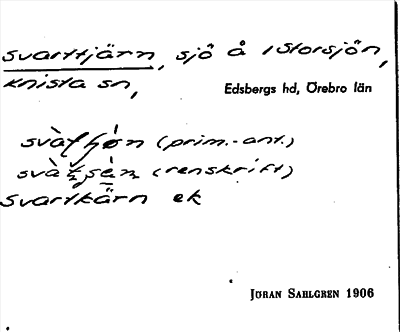 Svarttjärn, sjö å i Storsjön,
Knista sn,
Edsbergs hd, Örebro län
(prim.-ant.)
(renskrift)
Svartkärn ek
JÖRAN SAHLGREN 1906